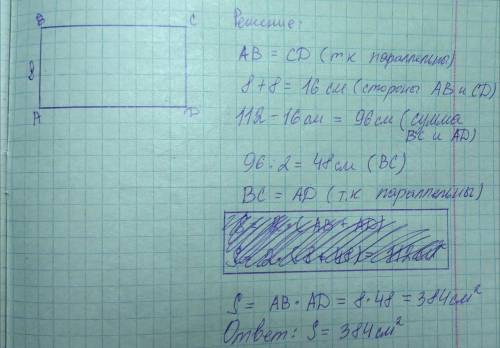 B C
8
A D
Решение:
AB = CD (т.к параллельны)
8+8=16 см (стороны AB и CD)
112-16 см = 96 см (сумма
BC и AD)
96·2=48 см (BC)
BC = AD (т.к параллельны)
S = AB · AD = 8·48 = 384 см²
Ответ: S = 384 см²